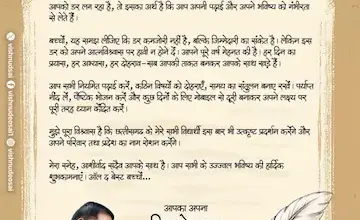 आपको डर लग रहा है, तो इसका अर्थ है कि आप अपनी पढ़ाई और अपने भविष्य को गंभीरता
से लेते हैं।
बच्चों, यह समझ लीजिए कि डर कमजोरी नहीं है, बल्कि जिम्मेदारी का संकेत है। लेकिन इस
डर को अपने आत्मविश्वास पर हावी न होने दें। आपने पूरे वर्ष मेहनत की है। हर दिन का
प्रयास, हर अभ्यास, हर दोहराव–सब आपकी ताकत बनकर आपके साथ खड़े हैं।
आप सभी नियमित पढ़ाई करें, कठिन विषयों को दोहराएँ, समय का संतुलन बनाए रखें। पर्याप्त
नींद लें, पौष्टिक भोजन करें और कुछ दिनों के लिए मोबाइल से दूरी बनाकर अपने लक्ष्य पर
पूरी तरह ध्यान केंद्रित करें।
मुझे पूरा विश्वास है कि छत्तीसगढ़ के मेरे सभी विद्यार्थी इस बार भी उत्कृष्ट प्रदर्शन करेंगे और
अपने परिवार तथा प्रदेश का नाम रोशन करेंगे।
मेरा स्नेह, आशीर्वाद सदैव आपके साथ है। आप सभी के उज्ज्वल भविष्य की हार्दिक
शुभकामनाएं। ऑल द बेस्ट बच्चों...
आपका अपना
vishnudsai
vishnudeosai